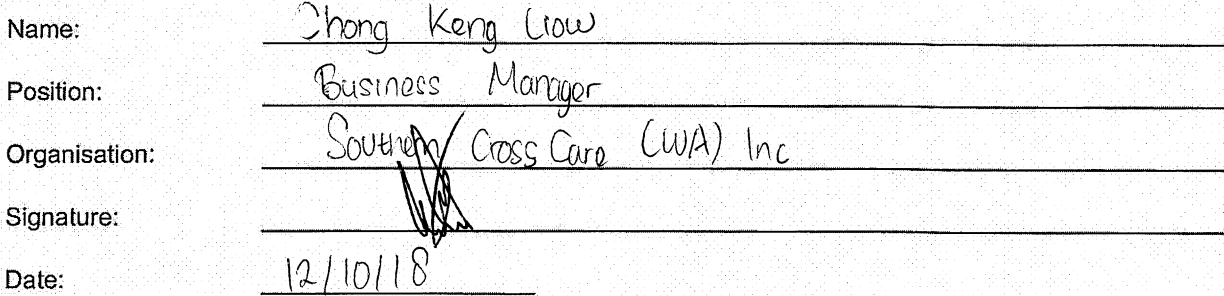 Name: Chong Keng Liow
Position: Business Manager
Organisation: Southern Cross Care (WA) Inc
Signature:
Date: 12/10/18